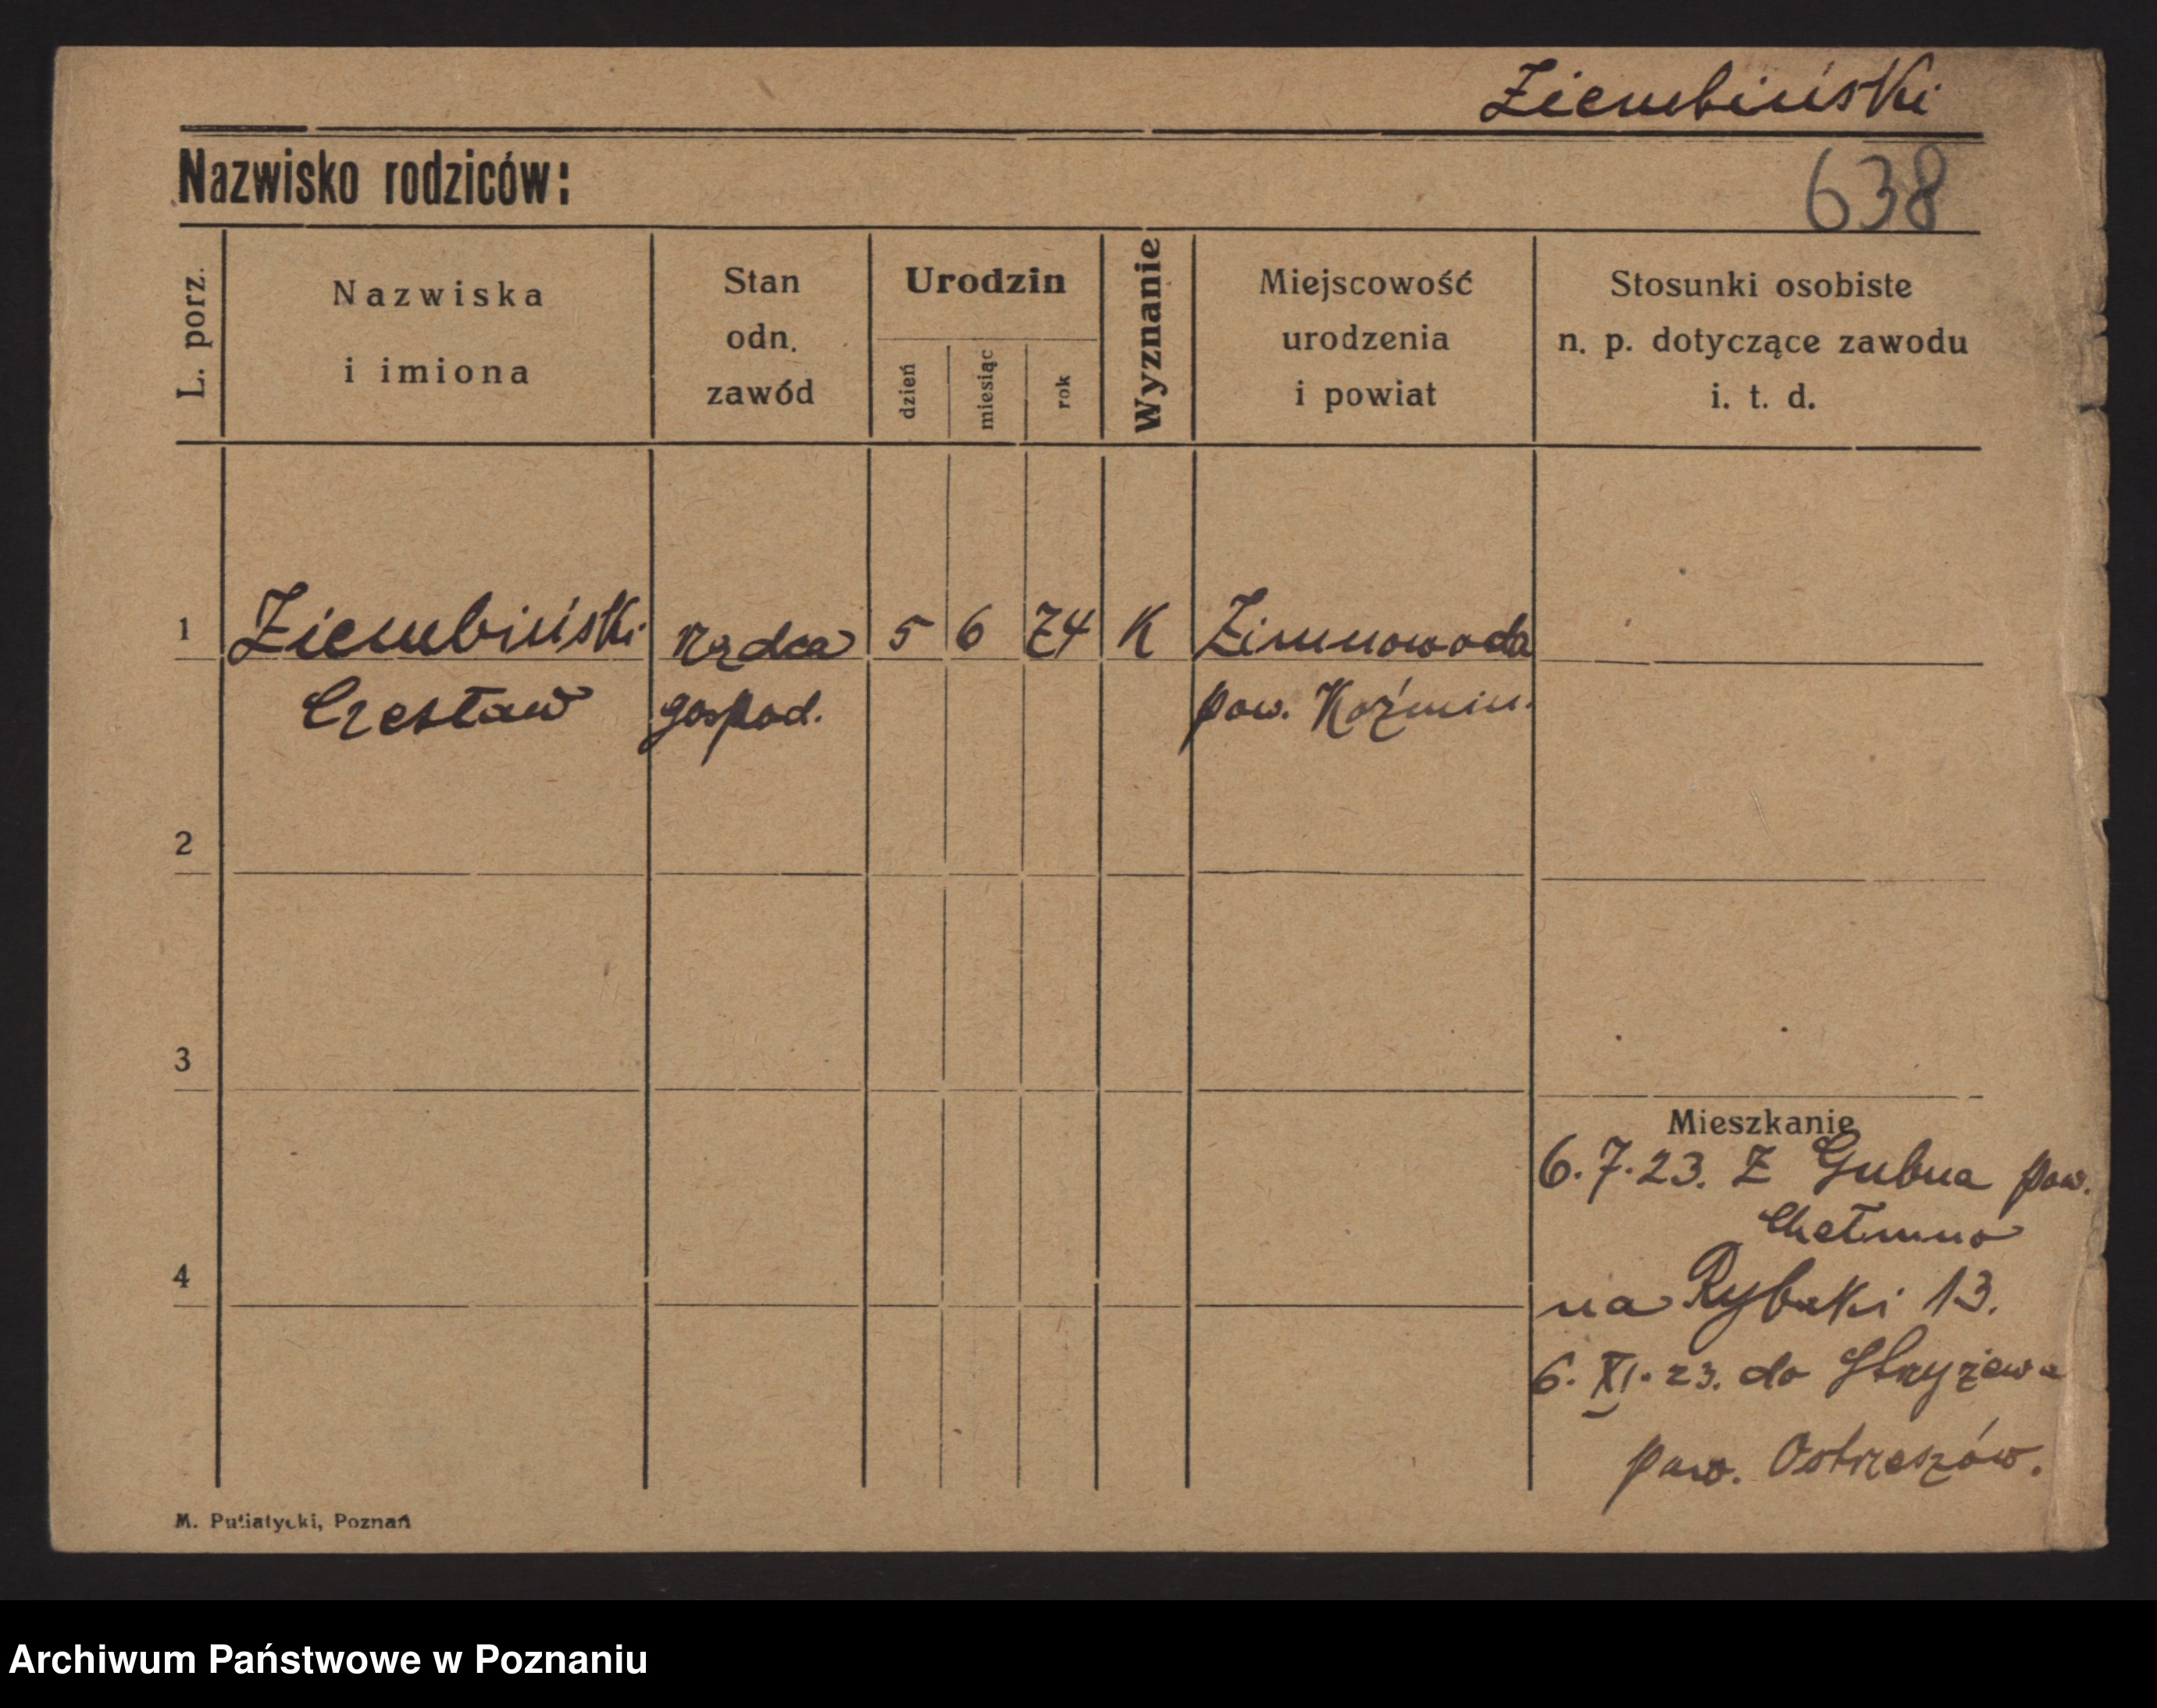 Ziembiński
Nazwisko rodziców:
638
L. porz.
Nazwiska
i imiona
Stan
odn.
zawód
Urodzin
dzień
miesiąc
rok
Wyznanie
Miejscowość
urodzenia
i powiat
Stosunki osobiste
n. p. dotyczące zawodu
i. t. d.
1 Ziembiński rządca 5 6 74 K Zimnowoda
Czesław gospod. pow. Koźmin.
2
3
Mieszkanie
6.7.23. Z Gubna pow.
Chełmno
4
na Rybaki 13.
6.XI.23. do Strzyżewa
pow. Ostrzeszów.
M. Putiatycki, Poznań
Archiwum Państwowe w Poznaniu